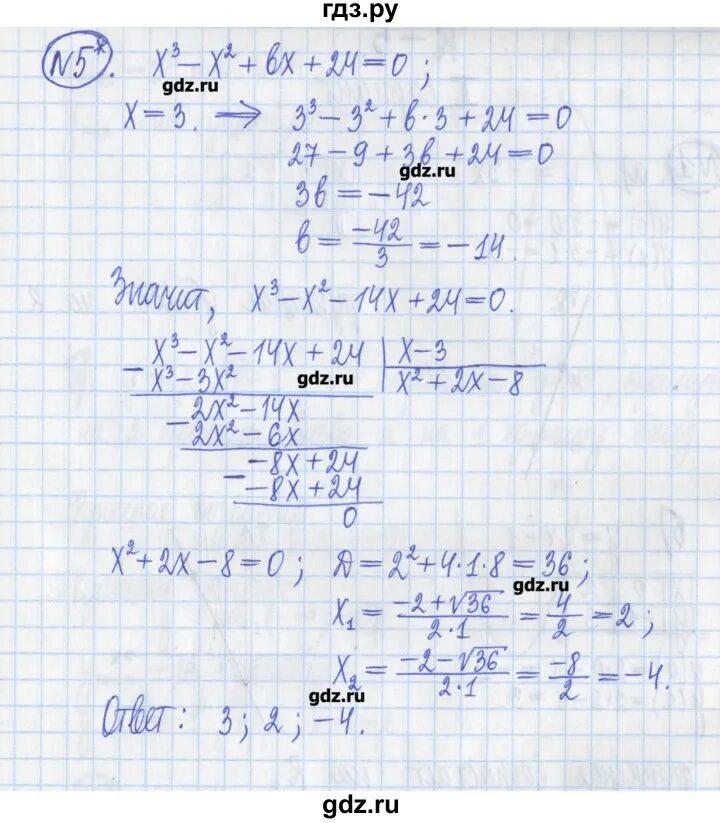 гдз.ру
N5*. x³ – x² + bx + 24 = 0 ;
gdz.ru
x = 3. ⟹ 3³ – 3² + b · 3 + 24 = 0
27 – 9 + 3b + 24 = 0
gdz.ru
3b = –42
b = –42/3 = –14.
Значит, x³ – x² – 14x + 24 = 0.
– x³ – x² – 14x + 24 | x – 3
x³ – 3x² gdz.ru x² + 2x – 8
– 2x² – 14x
2x² – 6x
– –8x + 24
–8x + 24
0
x² + 2x – 8 = 0 ; D = 2² + 4·1·8 = 36 ;
gdz.ru
x₁ = (–2 + √36)/(2·1) = 4/2 = 2 ;
x₂ = (–2 – √36)/(2·1) = –8/2 = –4.
gdz.ru
Ответ : 3 ; 2 ; –4.
gdz.ru